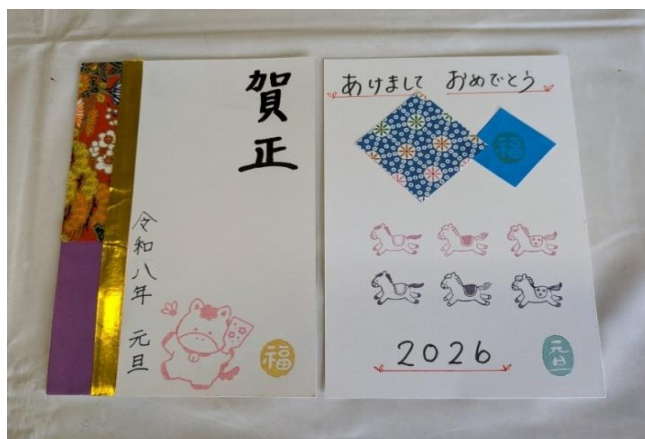 賀正
令和八年 元旦
福
あけまして おめでとう
福
2026
元旦